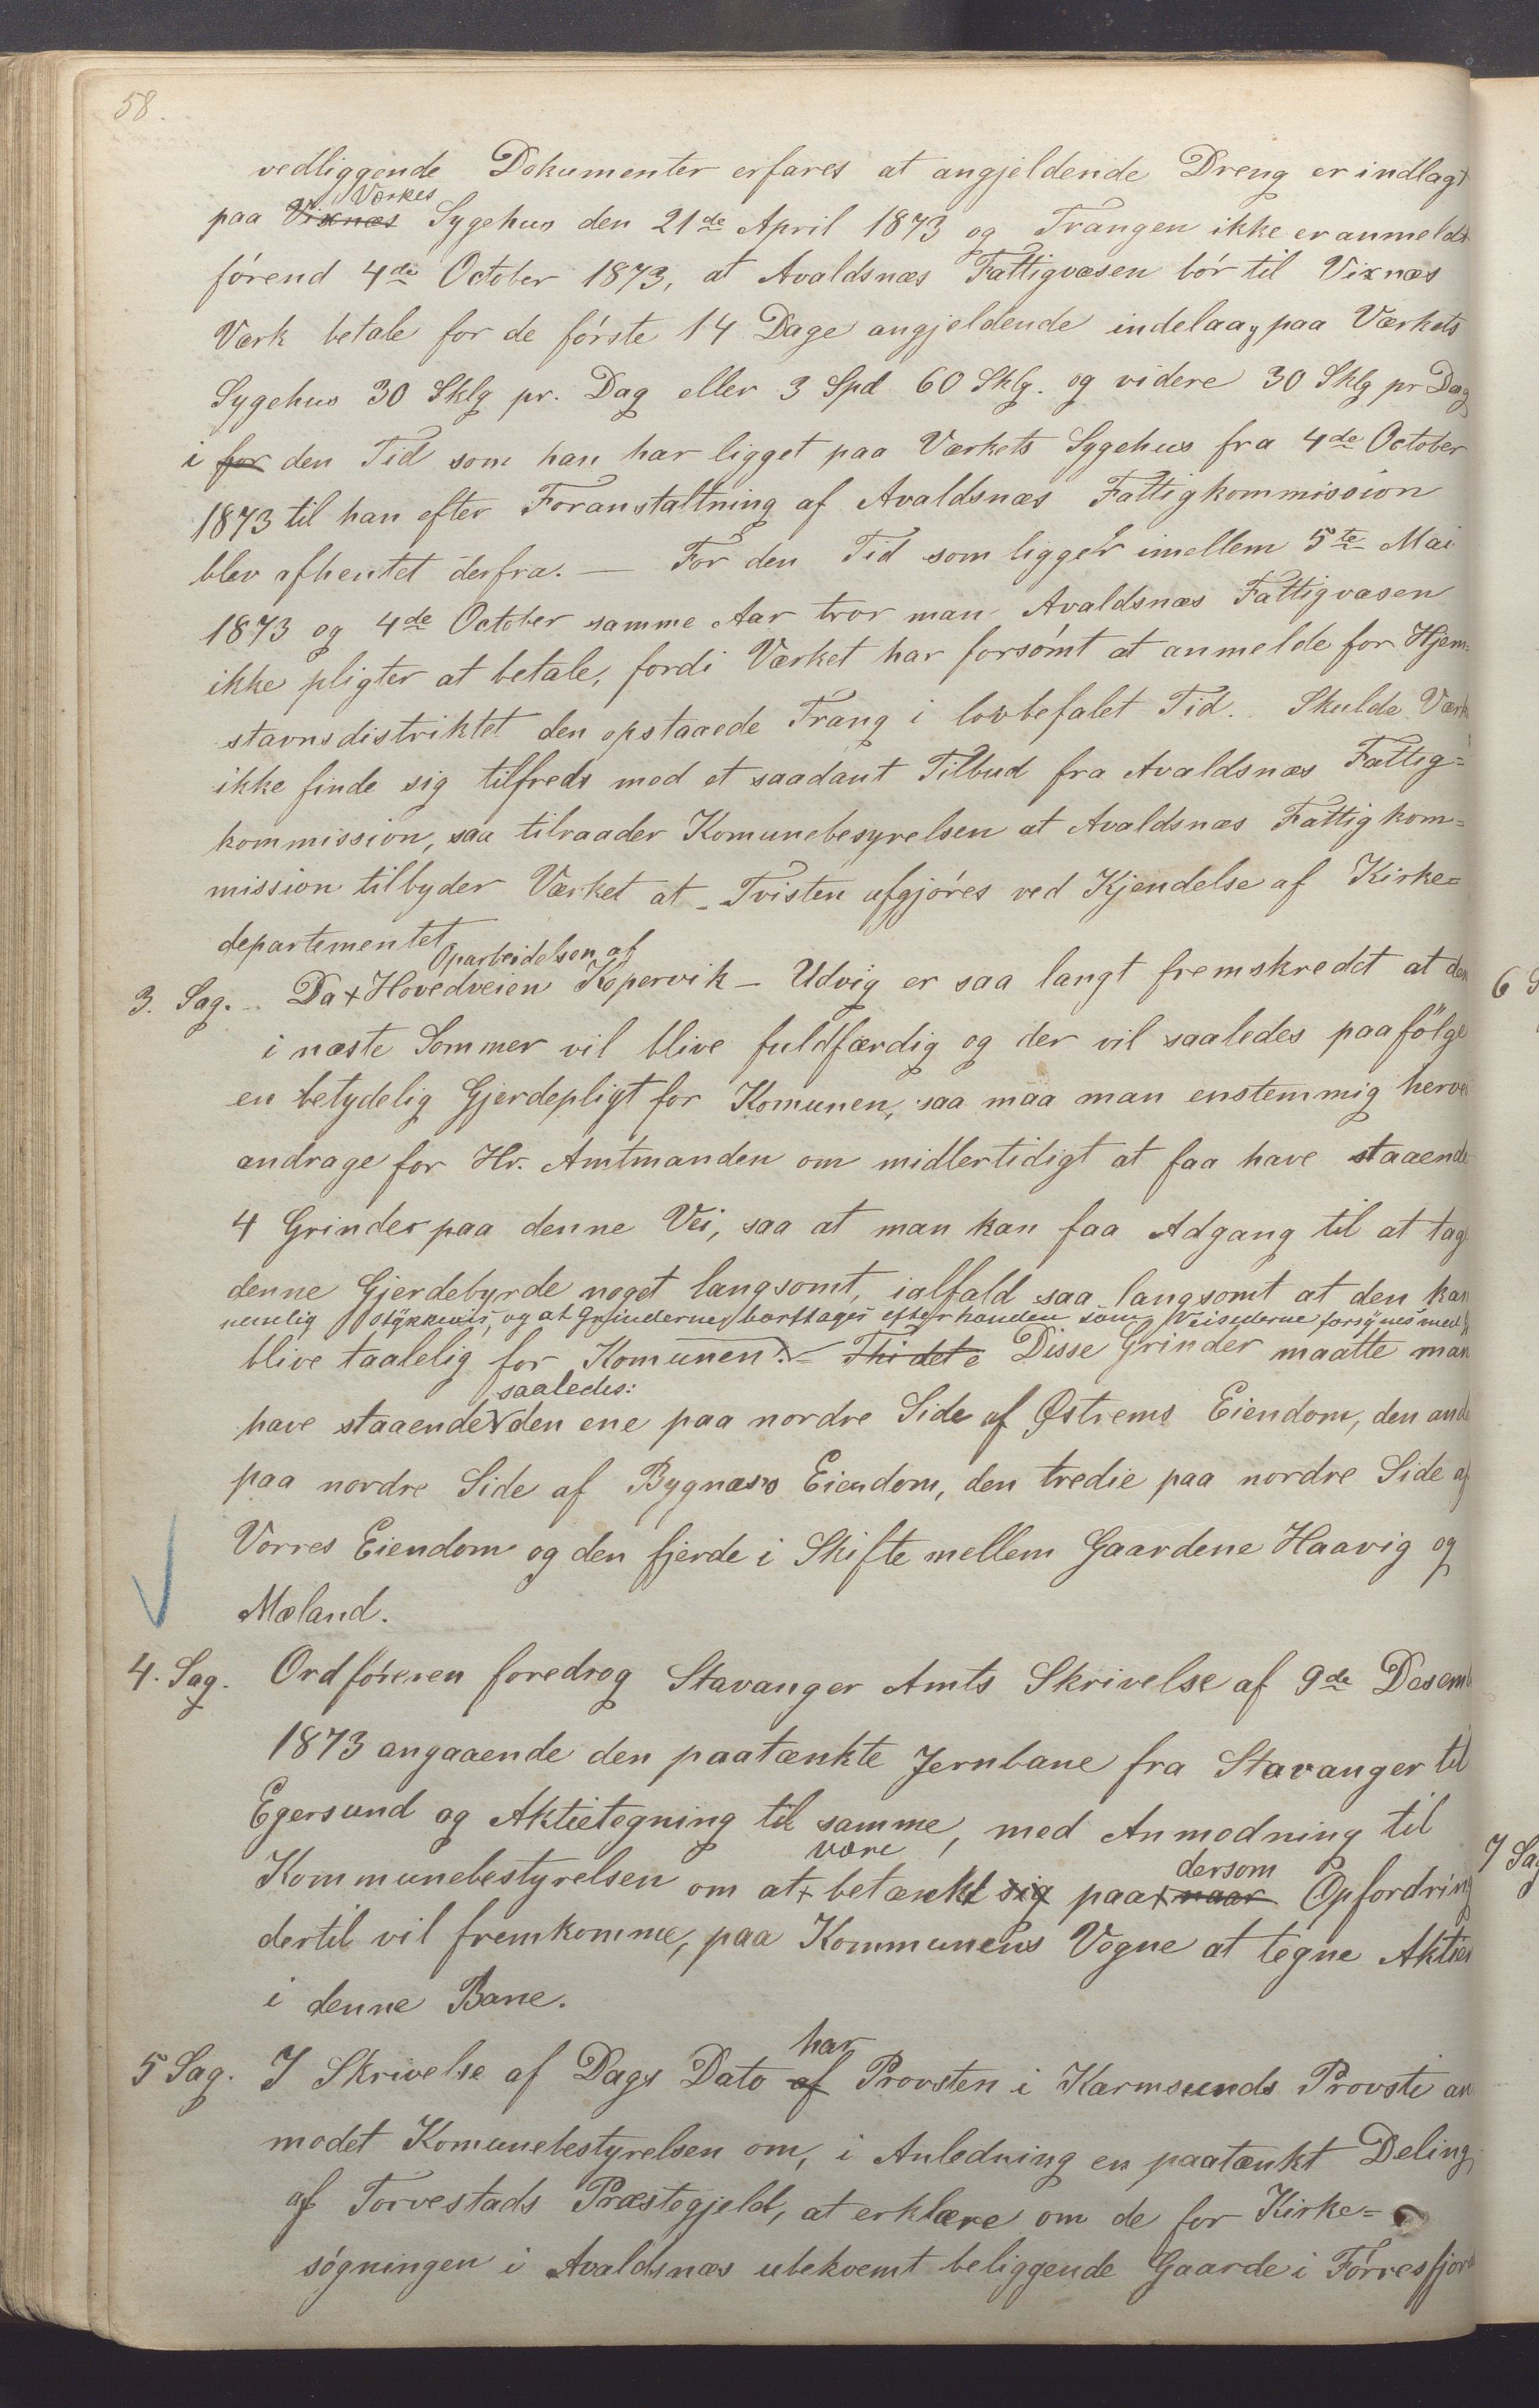 58.
vedliggende Dokumenter erfares at angjeldende Dreng er indlagt
Værkes
paa Vixnæs Sygehus den 21de April 1873 og Trangen ikke er anmeldt
førend 4de October 1873, at Avaldsnæs Fattigvæsen bør til Vixnæs
Værk betale for de første 14 Dage angjeldende indelaag paa Værkets
Sygehus 30 Sklg pr. Dag eller 3 Spd 60 Sklg. og videre 30 Sklg pr Dag
i for den Tid som han har ligget paa Værkets Sygehus fra 4de October
1873 til han efter Foranstaltning af Avaldsnæs Fattigkommission
blev afhentet derfra. — For den Tid som ligger imellem 5te Mai
1873 og 4de October samme Aar tror man Avaldsnæs Fattigvæsen
ikke pligter at betale, fordi Værket har forsømt at anmelde for Hjem=
stavnsdistriktet den opstaaede Trang i lovbefalet Tid. Skulde Værk
ikke finde sig tilfreds med et saadant Tilbud fra Avaldsnæs Fattig=
kommission, saa tilraader Komunebesyrelsen at Avaldsnæs Fattigkom=
mission tilbyder Værket at Tvisten afgjøres ved Kjendelse af Kirke=
departementet
Oparbeidelsen af
3. Sag. Da + Hovedveien Kopervik – Udvig er saa langt fremskredet at den
i næste Sommer vil blive fuldfærdig og der vil saaledes paafølge
en betydelig Gjerdepligt for Komunen, saa maa man enstemmig herve
andrage for Hr. Amtmanden om midlertidigt at faa have staaende
4 Grinder paa denne Vei, saa at man kan faa Adgang til at tage
denne Gjerdebyrde noget langsomt, ialfald saa langsomt at den kan
nemlig stykkevis, og at Grinderne borttages efterhaanden som Veisiderne forsynes med
blive taalelig for Komunen. Thi det e Disse Grinder maatte man
saaledes:
have staaende den ene paa nordre Side af Østrems Eiendom, den ande
paa nordre Side af Bygnæs's Eiendom, den tredie paa nordre Side af
Vorres Eiendom og den fjerde i Skifte mellem Gaardene Haavig og
Mæland.
4. Sag. Ordføreren foredrog Stavanger Amts Skrivelse af 9de Desemb
1873 angaaende den paatænkte Jernbane fra Stavanger til
Egersund og Aktietegning til samme, med Anmodning til
være dersom
Kommunebestyrelsen om at + betænkt sig paa + naar Opfordring
dertil vil fremkomme, paa Kommunens Vegne at tegne Aktier
i denne Bane.
har
5 Sag. I Skrivelse af Dags Dato af Provsten i Karmsunds Provsti an
modet Komunebestyrelsen om, i Anledning en paatænkt Deling
af Torvestads Præstegjeld, at erklære om de for Kirke=
søgningen i Avaldsnæs ubekvemt beliggende Gaarde i Førresfjord
6 S
7 Sag